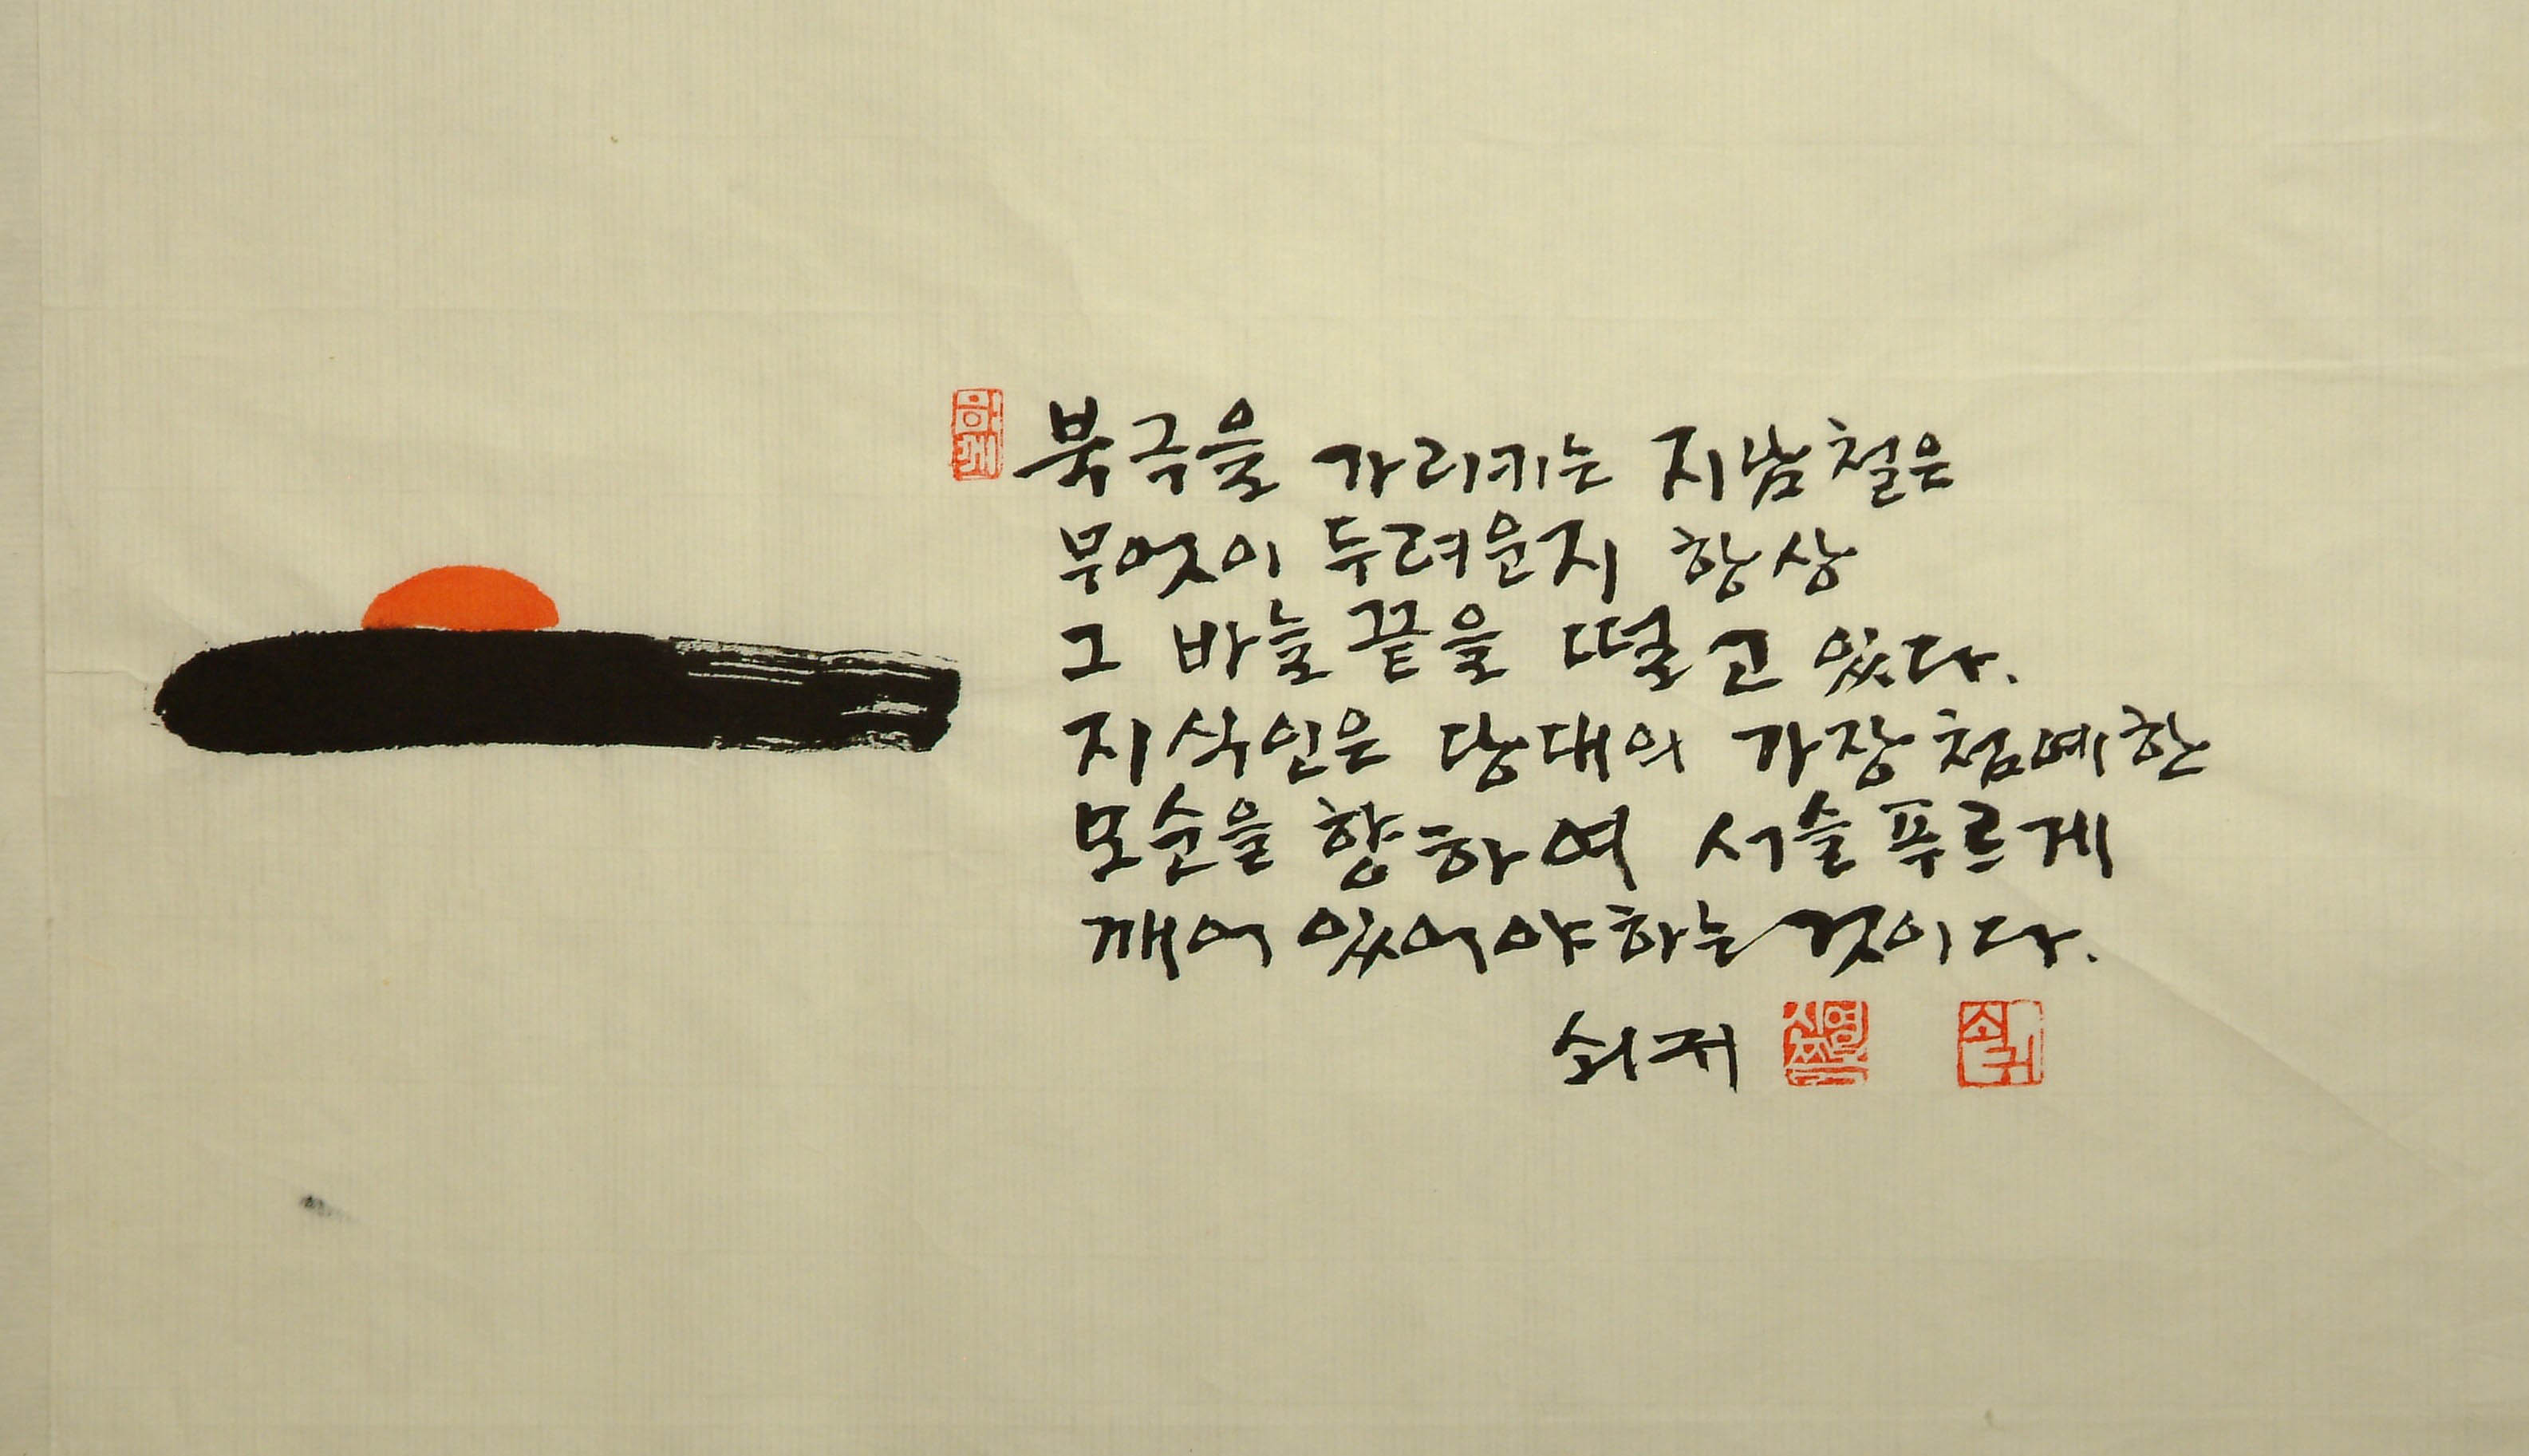 함께
북극을 가리키는 지남철은
무엇이 두려운지 항상
그 바늘 끝을 떨고 있다.
지식인은 당대의 가장 첨예한
모순을 향하여 서슬 푸르게
깨어 있어야하는 것이다.
쇠귀